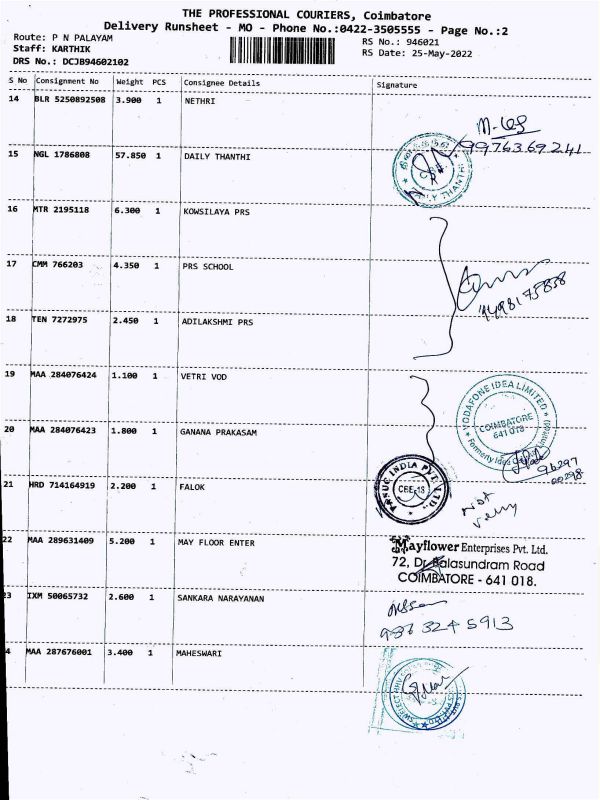 THE PROFESSIONAL COURIERS, Coimbatore
Delivery Runsheet - MO - Phone No.:0422-3505555 - Page No.:2
Route: P N PALAYAM
RS No.: 946021
Staff: KARTHIK
RS Date: 25-May-2022
DRS No.: DCJB94602102
S No Consignment No Weight PCS Consignee Details Signature
14 BLR 5250892508 3.900 1 NETHRI
9976369241
15 NGL 1786808 57.850 1 DAILY THANTHI
16 MTR 2195118 6.300 1 KOWSILAYA PRS
17 CMM 766203 4.350 1 PRS SCHOOL
18 TEN 7272975 2.450 1 ADILAKSHMI PRS
19 MAA 284076424 1.100 1 VETRI VOD
VODAFONE IDEA LIMITED
COIMBATORE
641 018
20 MAA 284076423 1.800 1 GANANA PRAKASAM
21 HRD 714164919 2.200 1 FALOK
INDIA PVT. LTD.
CBE-18
22 MAA 289631409 5.200 1 MAY FLOOR ENTER
Mayflower Enterprises Pvt. Ltd.
72, Dr. Balasundram Road
COIMBATORE - 641 018.
23 IXM 50065732 2.600 1 SANKARA NARAYANAN
4 MAA 287676001 3.400 1 MAHESWARI